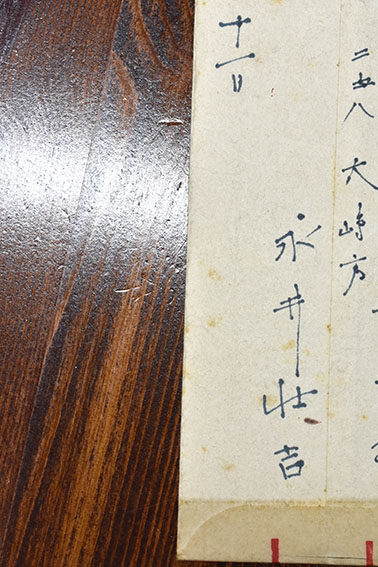 二五八 大嶋方
永井壮吉
十一日